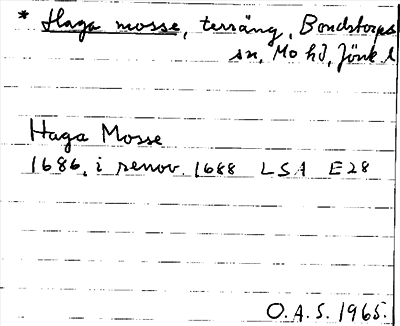 * Haga mosse, terräng, Bondstorps
sn, Mo hd, Jönk l
Haga Mosse
1686, i renov. 1688 LSA E28
O.A.S. 1965.